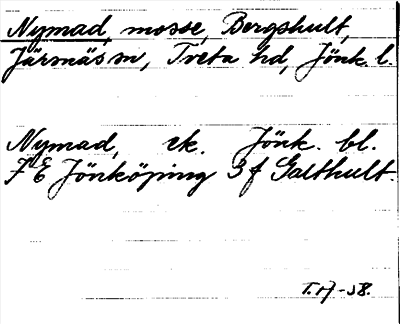 Nymad, mosse, Bergshult,
Järsnäs sn, Tveta hd, Jönk. l.
Nymad, ek. Jönk. bl.
7 E Jönköping 3 f Galthult.